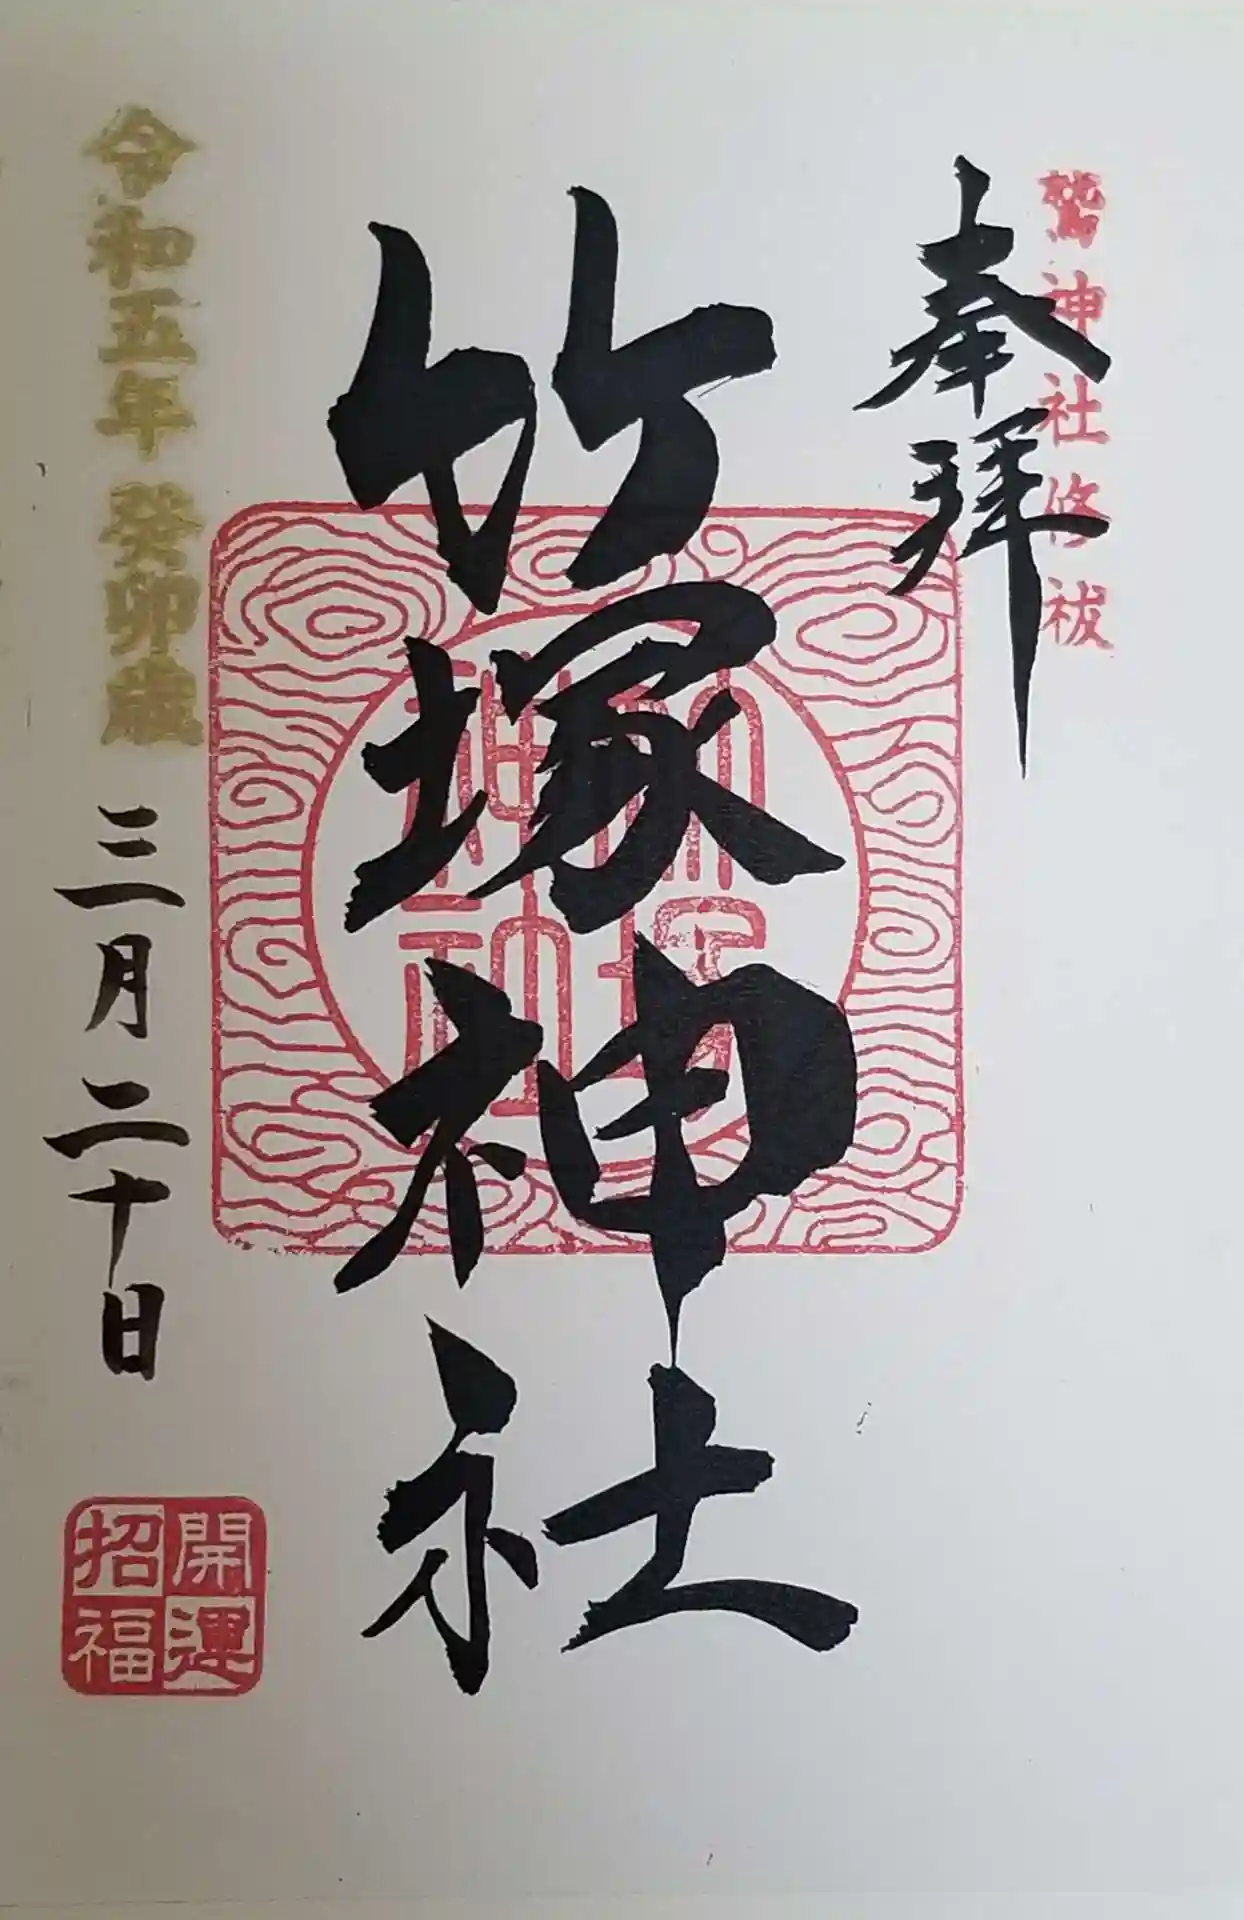 鷲神社修祓
奉拝
竹塚神社
竹塚
神社
令和五年 癸卯歳
三月二十日
開運
招福